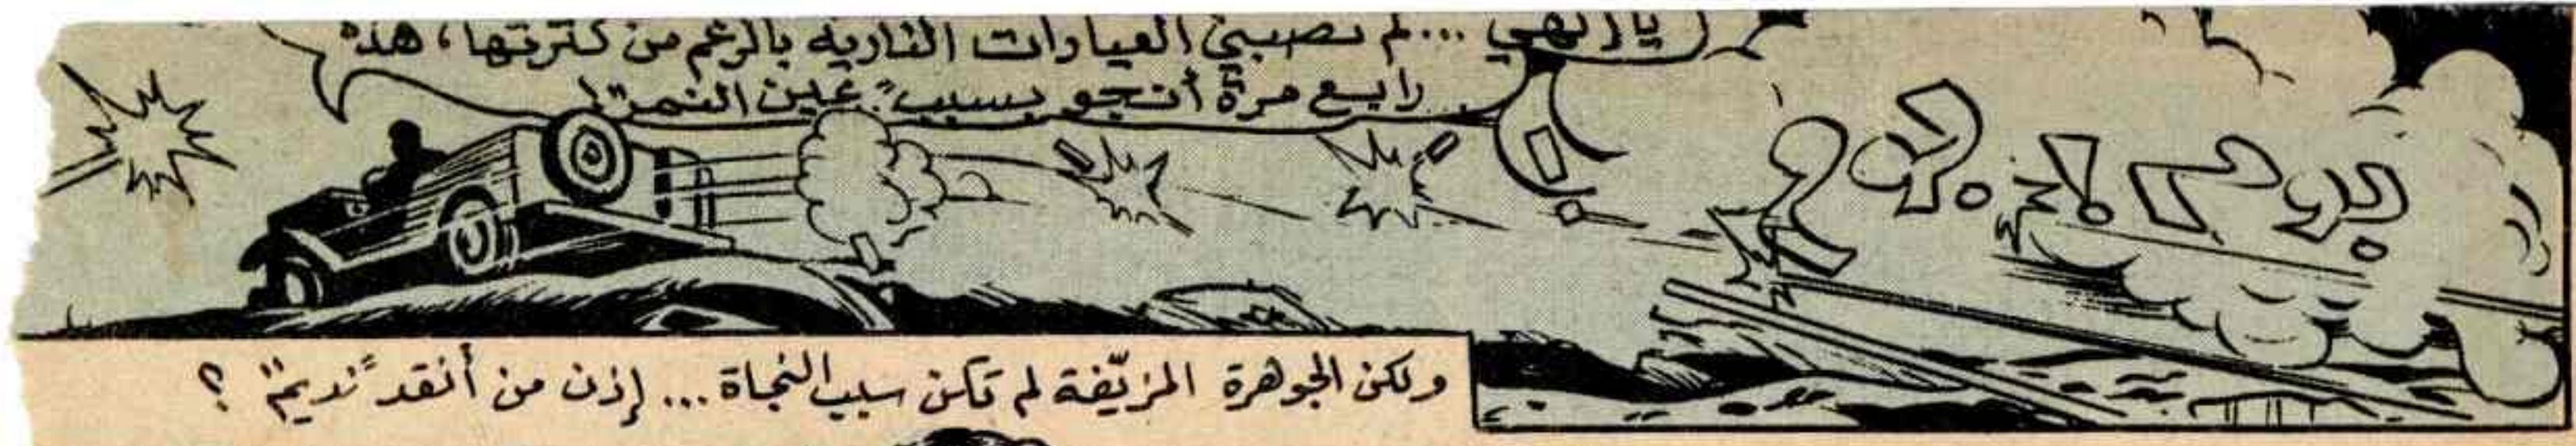 يا إلهي ... لم تصبني العيارات النارية بالرغم من كثرتها، هذه
رابع مرة أنجو بسبب "عين النمر"!
بوم! بوم!
ولكن الجوهرة المزيّفة لم تكن سبب النجاة ... إذن من أنقذ "نديم" ؟